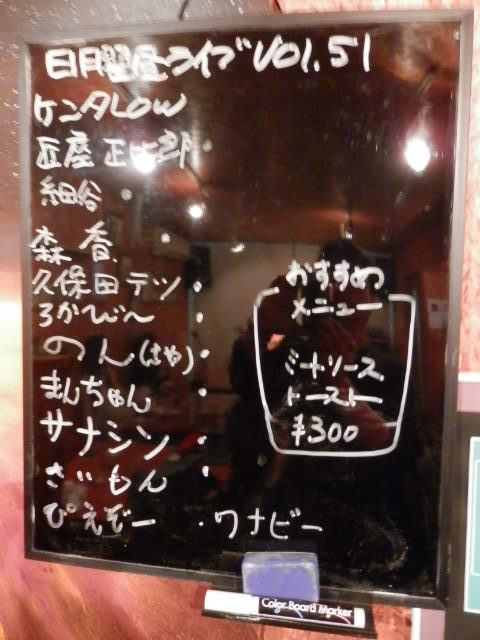 日月曜昼ライブ VOl.51
ケンタLOW
匠座 正比郎
細谷
森 香
久保田テツ
ろかびん
のん(はや)
まんちゃん
サナシン
さいもん
ぴえぞー ・ワナビー
おすすめ
メニュー
ミートソース
トースト
¥300
Color Board Marker